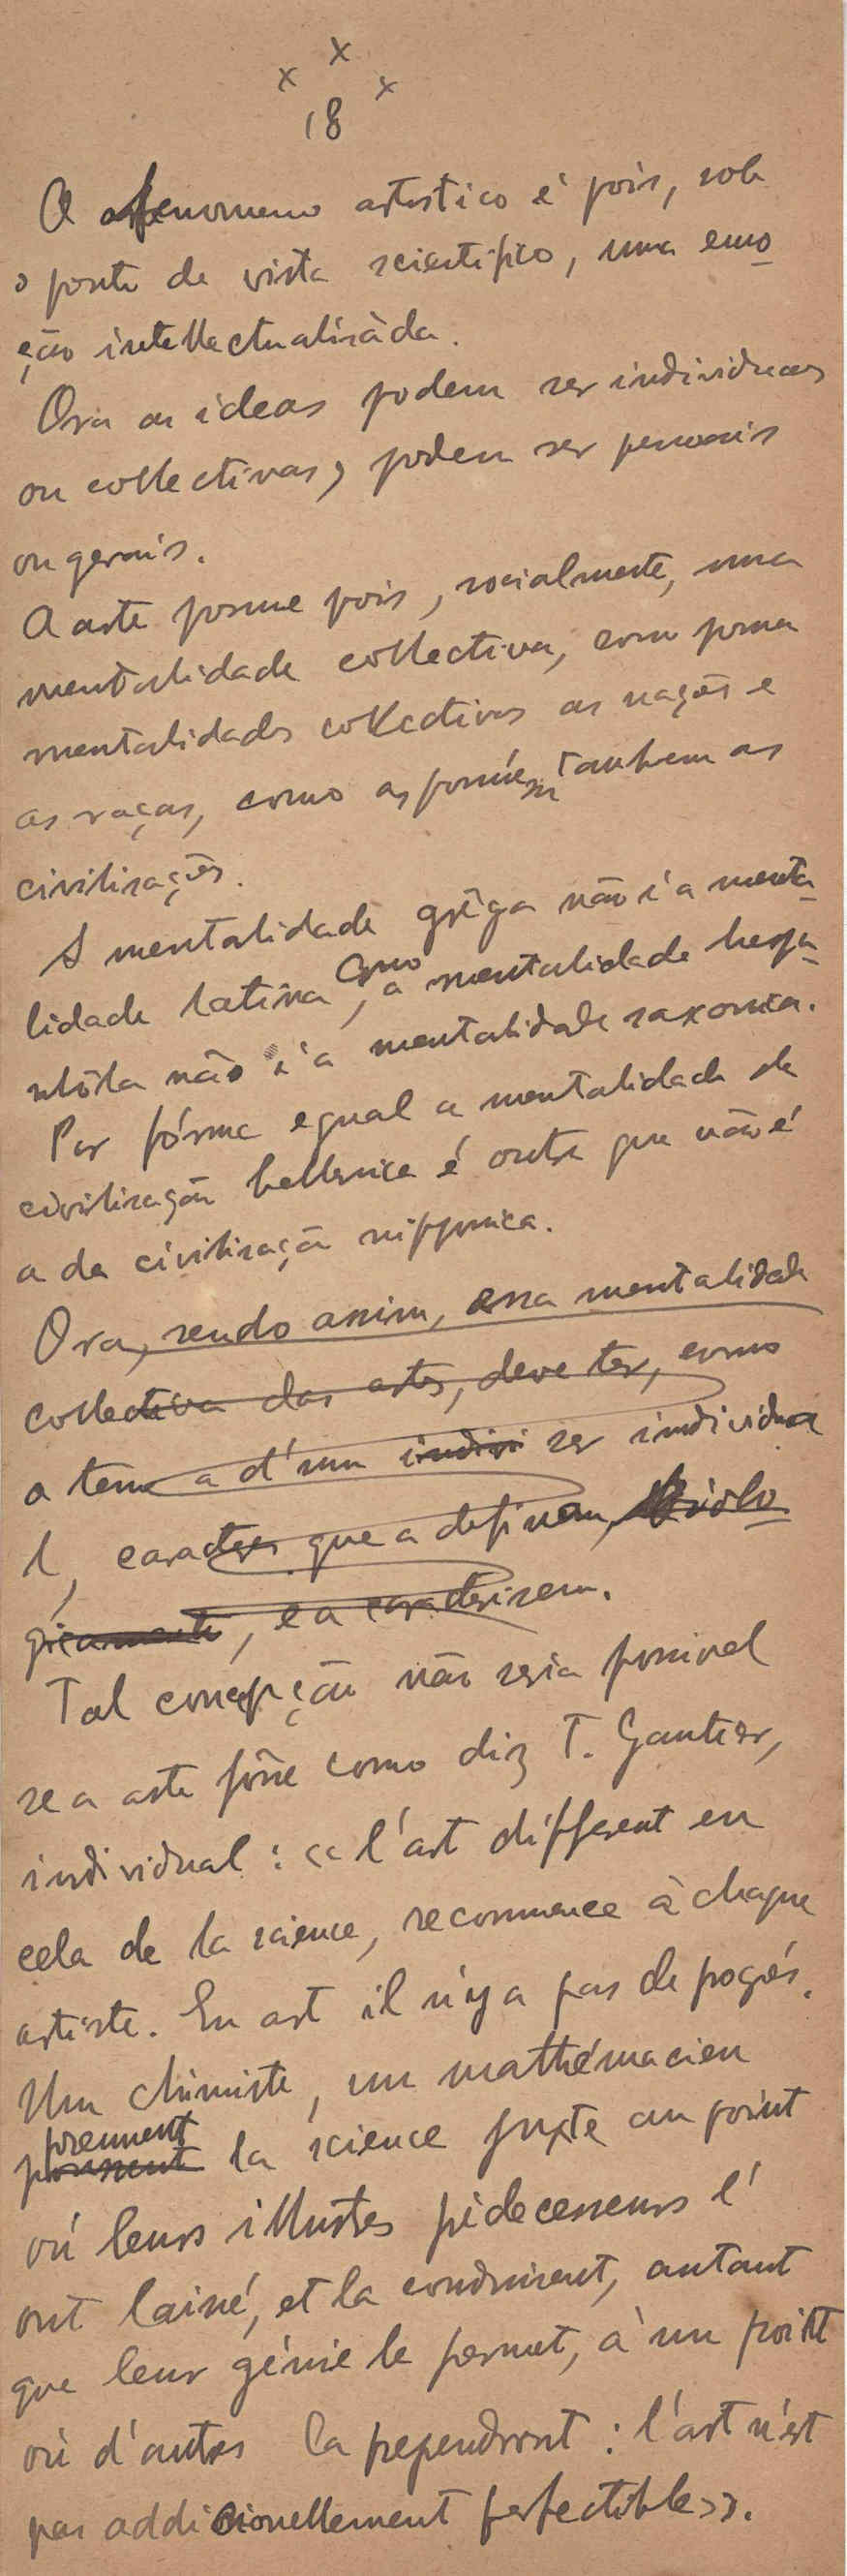 x x x
18
O fenomeno artistico é pois, sob
o ponto de vista scientifico, uma emo
ção intellectualisàda.
Ora as ideas podem ser individuaes
ou collectivas, podem ser pessoais
ou gerais.
A arte forma pois, socialmente, uma
mentalidade collectiva, como forma
mentalidades collectivas as nações e
as raças, como as formem tambem as
civilisações.
A mentalidade grêga não é a menta
lidade latina, como a mentalidade hespa
nhóla não é a mentalidade saxonica.
Por fórma egual a mentalidade da
civilisação hellenica é outra que não é
a da civilisação nipponica.
Ora, sendo assim, essa mentalidade
collectiva das artes, deve ter, como
a tem a d'um indivi ser individua
l, caracteres que a definam, biolo
gicamente, e a caracterisem.
Tal concepção não seria possivel
se a arte fôsse como diz T. Gautier,
individual: «l'art différent en
cela de la science, recommence à chaque
artiste. En art il n'y a pas de progrés.
Um chimiste, un mathémacien
prennent la science juxte au point
où leurs illustres prédecesseurs l'
ont laissé, et la conduisent, autant
que leur génie le permet, à un point
où d'autres la reprendront: l'art n'est
pas addicionellement perfectible».